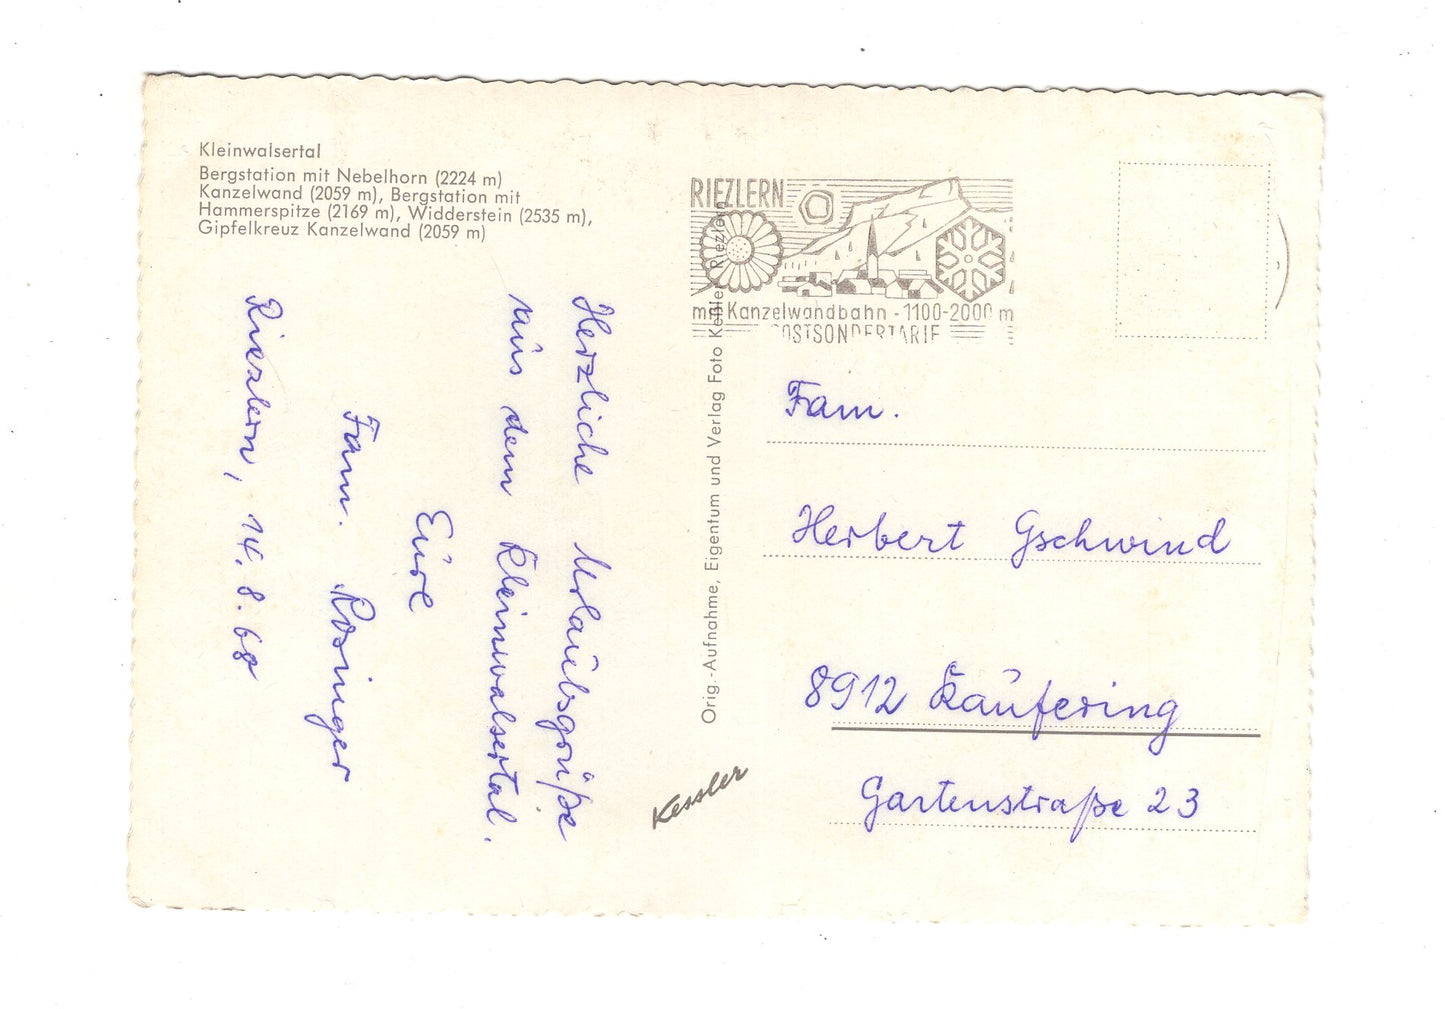 Kleinwalsertal
Bergstation mit Nebelhorn (2224 m)
Kanzelwand (2059 m), Bergstation mit
Hammerspitze (2169 m), Widderstein (2535 m),
Gipfelkreuz Kanzelwand (2059 m)
Herzliche Urlaubsgrüße
aus dem Kleinwalsertal.
Eure
Fam. Rosinger
Riezlern, 14.8.68
Orig.-Aufnahme, Eigentum und Verlag Foto Keßler Riezlern
Kessler
RIEZLERN
mit Kanzelwandbahn - 1100-2000 m
POSTSONDERTARIF
Fam.
Herbert Gschwind
8912 Kaufering
Gartenstraße 23